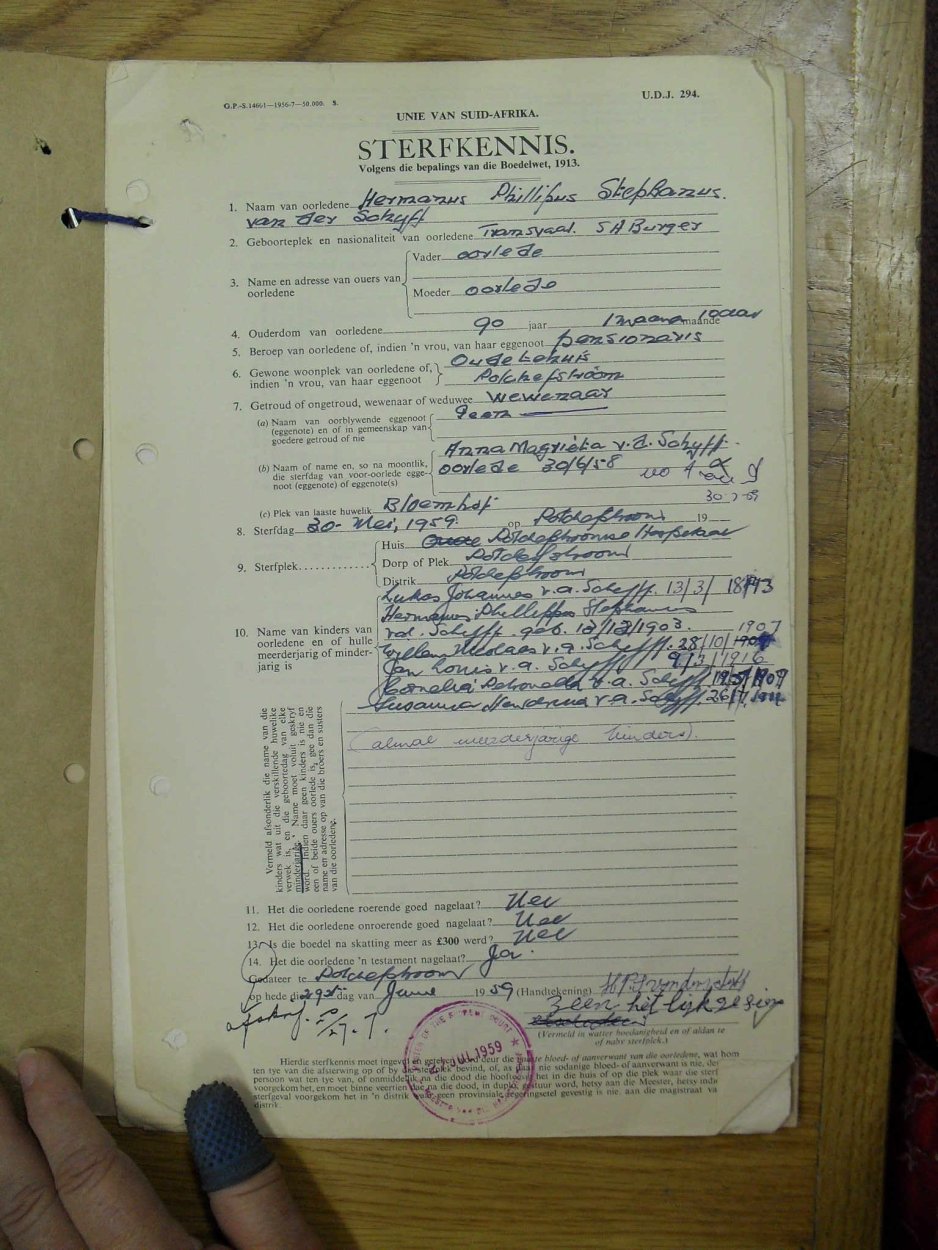 G.P.-S.14661—1956-7—50.000. S.
U.D.J. 294.
UNIE VAN SUID-AFRIKA.
STERFKENNIS.
Volgens die bepalings van die Boedelwet, 1913.
1. Naam van oorledene Hermanus Phillipus Stephanus.
van der Schyff
2. Geboorteplek en nasionaliteit van oorledene Transvaal. SA Burger
3. Name en adresse van ouers van oorledene
Vader oorlede
Moeder oorlede
4. Ouderdom van oorledene 90 jaar 1 maand 10 daar maande
5. Beroep van oorledene of, indien 'n vrou, van haar eggenoot pensionaris
6. Gewone woonplek van oorledene of, indien 'n vrou, van haar eggenoot
Oudetehuis
Potchefstroom
7. Getroud of ongetroud, wewenaar of weduwee Wewenaar
(a) Naam van oorblywende eggenoot (eggenote) en of in gemeenskap van goedere getroud of nie
Geen
(b) Naam of name en, so na moontlik, die sterfdag van voor-oorlede eggenoot (eggenote) of eggenote(s)
Anna Magrieta v.d. Schyff.
oorlede 30/6/58
(c) Plek van laaste huwelik Bloemhof
8. Sterfdag 30- Mei, 1959. op Potchefstroom 19
9. Sterfplek
Huis Potchefstroomse Hospitaal
Dorp of Plek Potchefstroom
Distrik Potchefstroom
10. Name van kinders van oorledene en of hulle meerderjarig of minderjarig is
Lukas Johannes v.d. Schyff. 13/3/
Hermanus Phillippus Stephanus
vd. Schyff. geb. 12/12/1903.
Willem Nicolaas v.d. Schyff. 28/10/ 1907
Jan Louis v.d. Schyff 9/3/1916
Cornelia Petronella v.d. Schyff
Susanna Hendrina v.d. Schyff. 26/7/
(almal meerderjarige kinders).
Vermeld afsonderlik die name van die kinders wat uit die verskillende huwelike verwek is, en die geboortedag van elke minderjarige. Name moet voluit geskryf word. Indien daar geen kinders is nie en een of beide ouers oorlede is, gee dan die name en adresse op van die broers en susters van die oorledene.
11. Het die oorledene roerende goed nagelaat? Nee
12. Het die oorledene onroerende goed nagelaat? Nee
13. Is die boedel na skatting meer as £300 werd? Nee
14. Het die oorledene 'n testament nagelaat? Ja.
Gedateer te Potchefstroom
op hede die 29ste dag van Junie 1959 (Handtekening)
Geen het lyk gesien
(Vermeld in watter hoedanigheid en of aldan te of naby sterfplek.)
JUL 1959
Hierdie sterfkennis moet ingevul en geteken word deur die naaste bloed- of aanverwant van die oorledene, wat hom
ten tye van die afsterwing op of by die sterfplek bevind, of, as daar nie sodanige bloed- of aanverwant is nie, deur
persoon wat ten tye van, of onmiddellik na die dood die hooftoesig het in die huis of op die plek waar die sterf
voorgekom het, en moet binne veertien dae na die dood, in duplo gestuur word, hetsy aan die Meester, hetsy indien
sterfgeval voorgekom het in 'n distrik waar geen provinsiale regeringsetel gevestig is nie, aan die magistraat va
distrik.